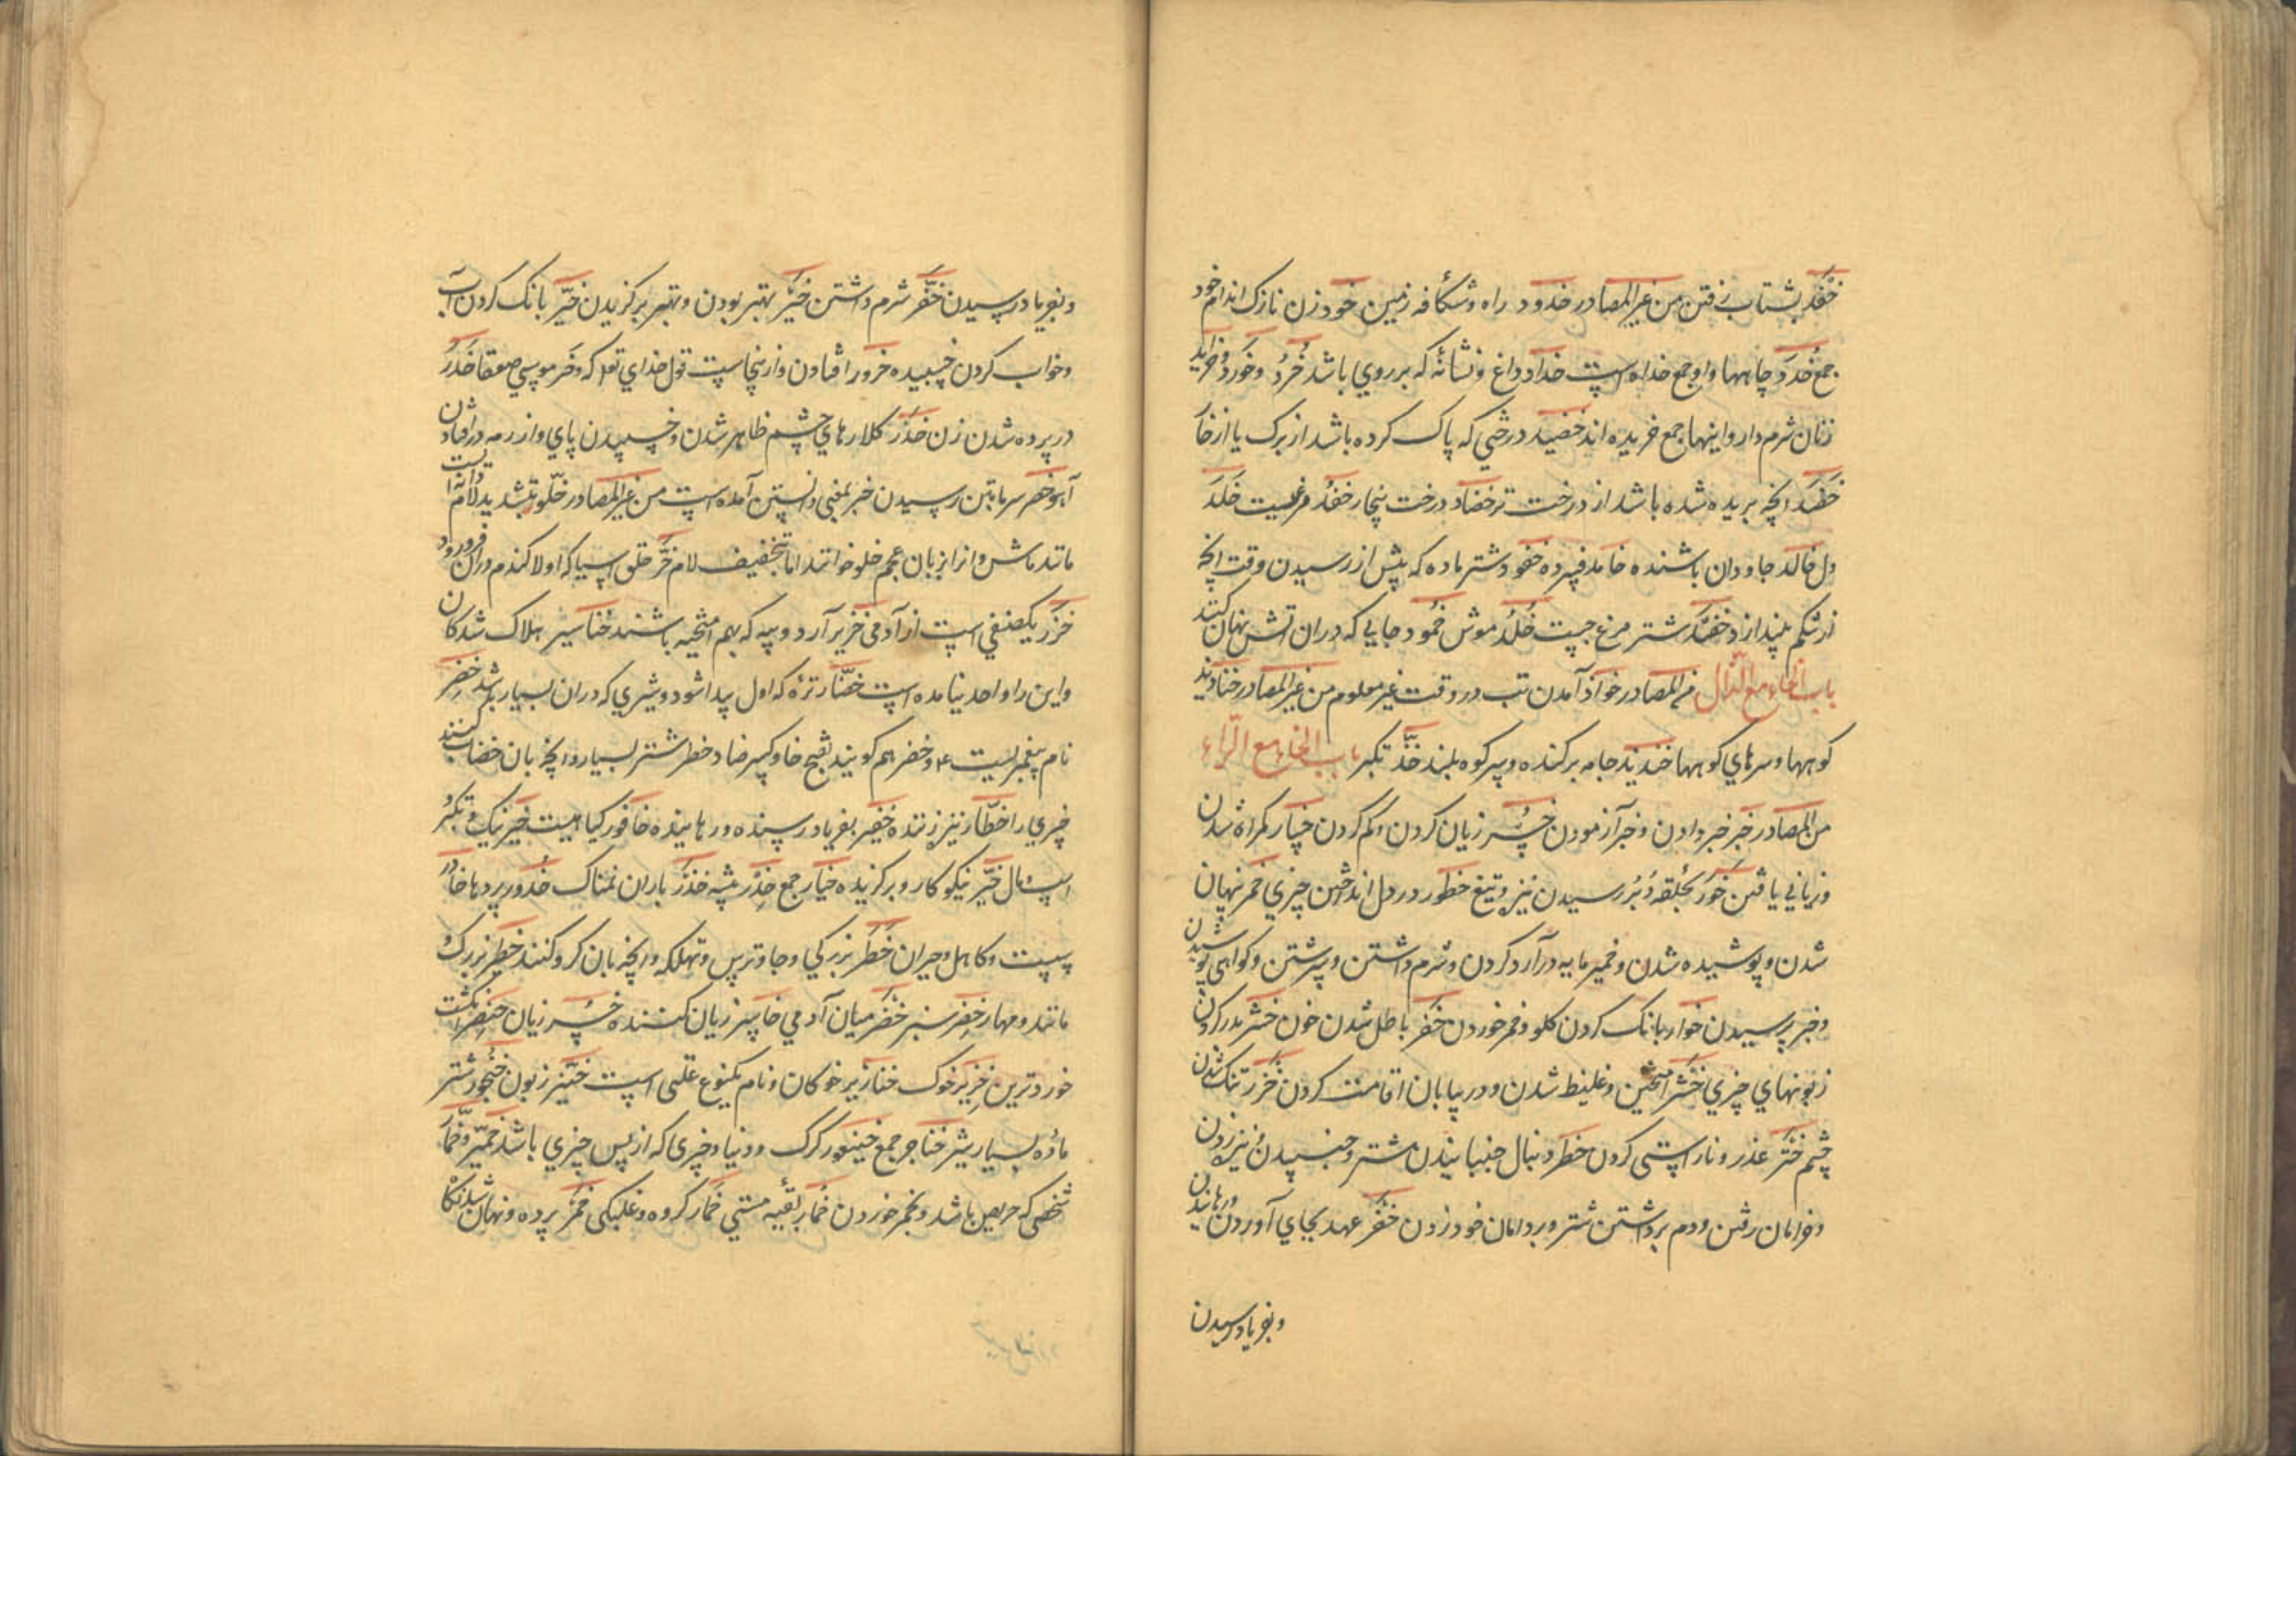 خَفْد بشتاب رفتن من غیر المصادر خدود راه و شکافه زمین خود زن نازک اندام خود
جمع خُدَد چاهها واو جمع خداه است خداد داغ و نشانه که بر روی باشد خُرَّد و خَرود و خراید
زنان شرم دار و اینها جمع خریده اند خضید درختی که پاک کرده باشد از برک یا از خا
خَضَد انچه بریده شده باشد از درخت تر خضاد درخت بیخار خفدُد مرغیست خَلَد
دل خالد جاودان باشنده خامد فسرده خفود شتر ماده که پیش از رسیدن وقت انچه
در شکم بیندازد شتر مرغ جست خُلْد موش خمود جایی که دران اتش نهان کنند
باب الخاء مع الذال من المصادر خواذ آمدن تب در وقت غیر معلوم من غیر المصادر خناذید
کوهها و سرهای کوهها خنذیذ جامه برکنده و سر کوه بلند تکبر باب الخاء مع الراء
من المصادر خبر خبر دادن و خبر آزمودن خُسر زیان کردن و کم کردن خسار کمراه شدن
و زیانی یافتن خَور بحلقه دُبُر رسیدن نیزه و تیغ خطور در دل انداختن چیزی خمر نهان
شدن و پوشیده شدن و خمیر مایه در آرد کردن و شرم داشتن و سرشتن و کواهی پوشیدن
و خبر پرسیدن خوار بانک کردن کلو و خمر خوردن خضر باطل شدن خون خشر بدر کردن
زبونهای چیزی خثر آمیختن و غلیظ شدن و در بیابان اقامت کردن خزر تنک شدن
چشم ختر غدر و ناراستی کردن خطر دنبال جنبانیدن شتر و جنبیدن نیزه زدن
و خرامان رفتن و دم برداشتن شتر و بر دامان خود زدن خفر عهد بجای آوردن و رهانیدن
و بفریاد رسیدن
و بفریاد رسیدن خَفَر شرم داشتن خَیْر بهتر بودن و بهتر برکزیدن خریر بانک کردن آب
و خواب کردن خسبیده خرور افتادن و ازینجاست قول خدای تعه که و خر موسی صعقا خَدَر
در پرده شدن زن خَدَر کلارهای چشم ظاهر شدن و خسبیدن پای و از رمه در افتادن
آهو خصر سرما بتن رسیدن خبر بمعنی دانستن آمده است من غیر المصادر خلّر بتشدید لام
مانند ماش و انرا بزبان عجم خلو خوانند اما بتخفیف لام خُر حلق آسیا که اولا کندم دران فرورود
خزر یک صنفی است از آدمی خزیر آرد و پیه که بهم آمیخته باشند خناسیر هلاک شدکان
و این را واحد نیامده است خضّار تره که اول پیدا شود و شیری که دران بسیار باشد خضر
نام پیغمبریست ع و خضر هم کویند بفتح خا و کسر ضاد خطر شتر بسیار و انچه بان خضاب کنند
چیزی را خطّار نیزه زننده خفیر بفریاد رسنده و رهاینده خافور کیاهیست خیر نیک و تکبر
است و مال خیّر نیکوکار و برکزیده خیار جمع خِدر بیشه خَدَر باران نمناک خدور پردها خادر
سست و کاهل و حیران خَطَر بزرکی و جاه و ترس و تهلکه و انچه بان کرو کنند خطیر بزرک و
مانند و مهار خضر سبز خَصْر میان آدمی خاسر زیان کننده خُسر زیان خنصر انکشت
خورد ترین خنزیر خوک خنازیر خوکان و نام یک نوع علتی است خیّر زبون خنجور شتر
ماده بسیار شیر خناجر جمع خیتعور کرک و دنیا و چیزی که از پس چیزی باشد خمیر و خمّار
شخصی که حریص باشد و بخمر خوردن خُمار بقیه مستی خَمار کروه و غلبکی خَمَر پرده و نهان شدنکاه